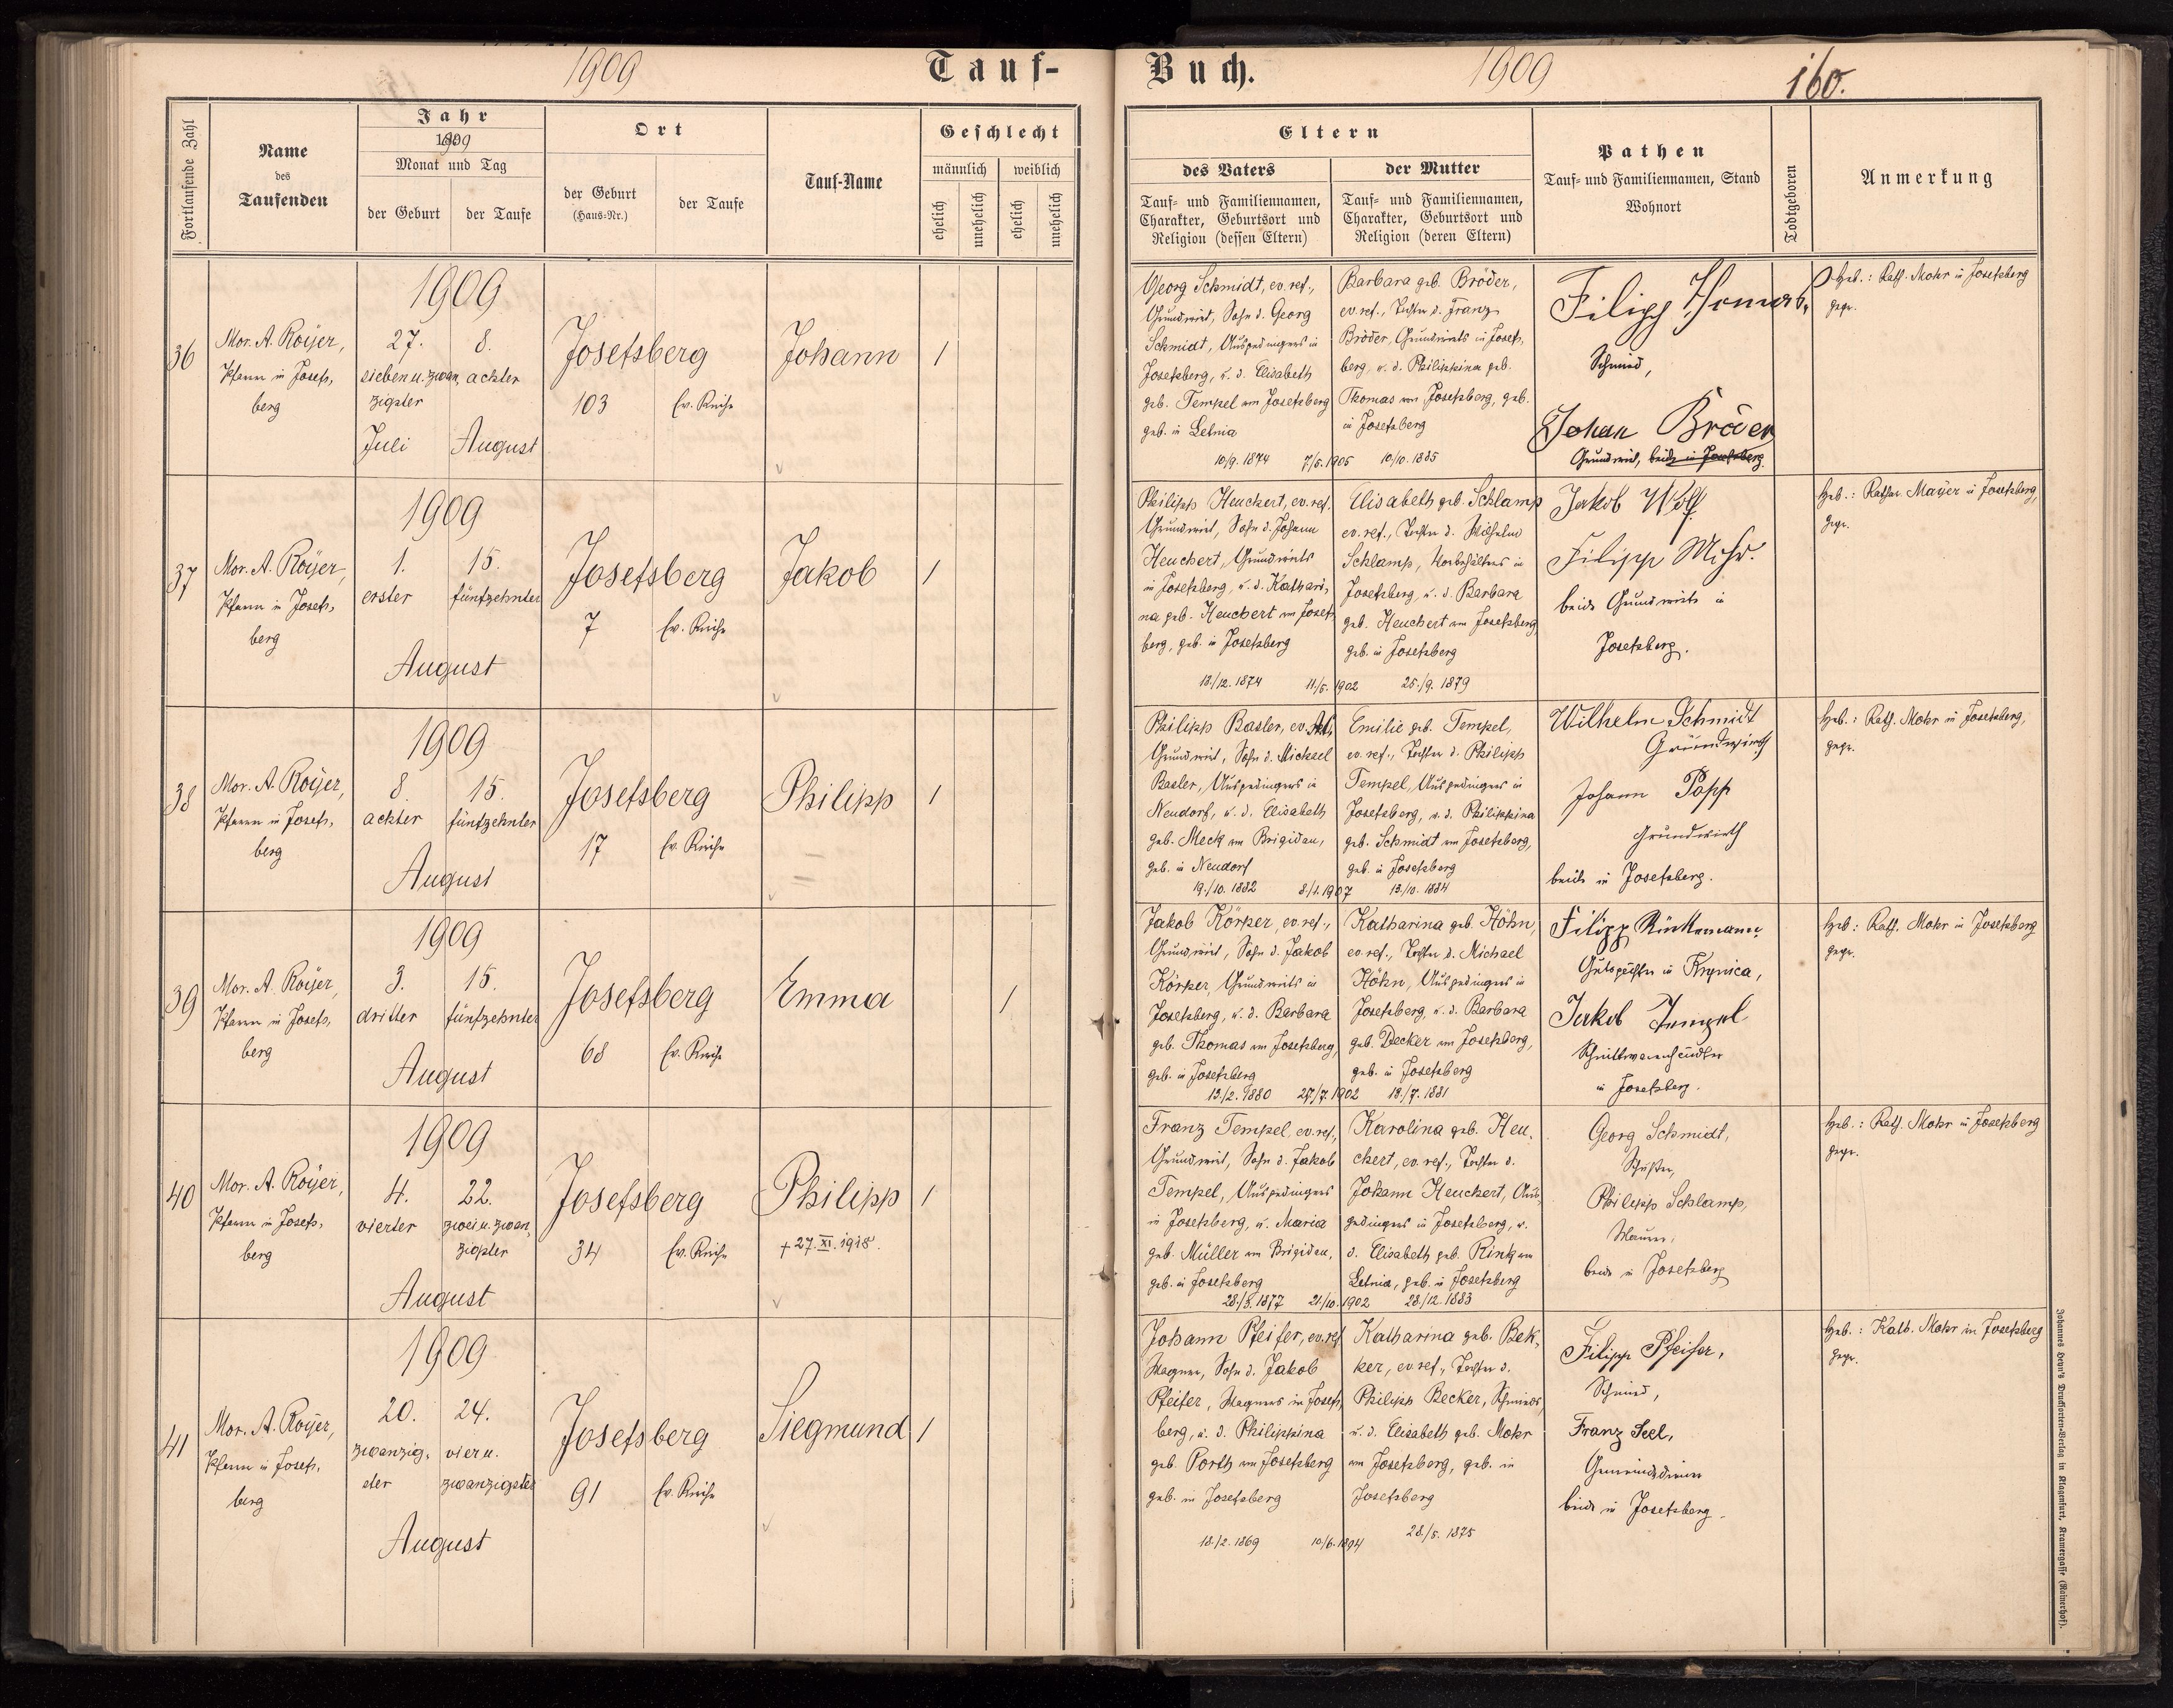 1909
Tauf-
Buch.
1909
160.
Fortlaufende Zahl
Name
des
Taufenden
Jahr
1909
Monat und Tag
der Geburt
der Taufe
Ort
der Geburt
(Haus-Nr.)
der Taufe
Tauf-Name
Geschlecht
männlich
weiblich
ehelich
unehelich
ehelich
unehelich
Eltern
des Vaters
Tauf- und Familiennamen,
Charakter, Geburtsort und
Religion (dessen Eltern)
der Mutter
Tauf- und Familiennamen,
Charakter, Geburtsort und
Religion (deren Eltern)
Pathen
Tauf- und Familiennamen, Stand
Wohnort
Todtgeboren
Anmerkung
36
Mor. A. Royer,
Pfarrer in Josefs-
berg
1909
27.
sieben u. zwan-
zigster
Juli
8.
achter
August
Josefsberg
103
Ev. Kirche
Johann
1
Georg Schmidt, ev. ref.,
Grundwirt, Sohn d. Georg
Schmidt, Ausgedingers in
Josefsberg, u. d. Elisabeth
geb. Tempel von Josefsberg
geb. in Letnia
10/9. 1874
7/5. 1905
Barbara geb. Bröder,
ev. ref., Tochter d. Franz
Bröder, Grundwirts in Josefs-
berg, u. d. Philippina geb.
Thomas von Josefsberg, geb.
in Josefsberg
10/10. 1885
Filipp Thomas,
Schmied,
Johan Bröder
Grundwirt, beide in Josefsberg.
Heb.: Kath. Mohr in Josefsberg
gepr.
37
Mor. A. Royer,
Pfarrer in Josefs-
berg
1909
1.
erster
15.
fünfzehnter
August
Josefsberg
7
Ev. Kirche
Jakob
1
Philipp Heuchert, ev. ref.
Grundwirt, Sohn d. Johann
Heuchert, Grundwirts
in Josefsberg, u. d. Kathari-
na geb. Heuchert von Josefs-
berg, geb. in Josefsberg
18./12. 1874
11/5. 1902
Elisabeth geb. Schlamp
ev. ref., Tochter d. Wilhelm
Schlamp, Vorbehälters in
Josefsberg, u. d. Barbara
geb. Heuchert von Josefsberg,
geb. in Josefsberg
25./9. 1879
Jakob Wolf
Filipp Mohr.
beide Grundwirte in
Josefsberg.
Heb.: Kathar. Mayer in Josefsberg,
gepr.
38
Mor. A. Royer,
Pfarrer in Josefs-
berg
1909
8.
achter
15.
fünfzehnter
August
Josefsberg
17
Ev. Kirche
Philipp
1
Philipp Basler, ev. A.C.,
Grundwirt, Sohn d. Michael
Basler, Ausgedingers in
Neudorf, u. d. Elisabeth
geb. Meck von Brigidau,
geb. in Neudorf
19./10. 1882
8/1. 1907
Emilie geb. Tempel,
ev. ref., Tochter d. Philipp
Tempel, Ausgedingers in
Josefsberg, u. d. Philippina
geb. Schmidt von Josefsberg,
geb. in Josefsberg
13./10. 1884
Wilhelm Schmidt
Grundwirth
Johann Popp
Grundwirth
beide in Josefsberg.
Heb.: Kath. Mohr in Josefsberg,
gepr.
39
Mor. A. Royer,
Pfarrer in Josefs-
berg
1909
3.
dritter
15.
fünfzehnter
August
Josefsberg
68
Ev. Kirche
Emma
1
Jakob Körper, ev. ref.,
Grundwirt, Sohn d. Jakob
Körper, Grundwirts in
Josefsberg, u. d. Barbara
geb. Thomas von Josefsberg,
geb. in Josefsberg
13./2. 1880
27./7. 1902
Katharina geb. Höhn,
ev. ref., Tochter d. Michael
Höhn, Ausgedingers in
Josefsberg, u. d. Barbara
geb. Decker von Josefsberg,
geb. in Josefsberg
18./7. 1881
Filipp
Gutspächter in Krynica,
Jakob Tempel
Schnittwarenhändler
in Josefsberg.
Heb.: Kath. Mohr in Josefsberg
gepr.
40
Mor. A. Royer,
Pfarrer in Josefs-
berg
1909
4.
vierter
22.
zwei u. zwan-
zigster
August
Josefsberg
34
Ev. Kirche
Philipp
+ 27. XI. 1918.
1
Franz Tempel, ev. ref.,
Grundwirt, Sohn d. Jakob
Tempel, Ausgedingers
in Josefsberg, u. Maria
geb. Müller von Brigidau,
geb. in Josefsberg
28./8. 1877
21/10. 1902
Karolina geb. Heu-
chert, ev. ref., Tochter d.
Johann Heuchert, Aus-
gedingers in Josefsberg, u.
d. Elisabeth geb. Rink von
Letnia, geb. in Josefsberg
28./12. 1883
Georg Schmidt,
Schuster,
Philipp Schlamp,
Maurer,
beide in Josefsberg
Heb.: Kath. Mohr in Josefsberg
gepr.
41
Mor. A. Royer,
Pfarrer in Josefs-
berg
1909
20.
zwanzig-
ster
24.
vier u.
zwanzigster
August
Josefsberg
91
Ev. Kirche
Siegmund
1
Johann Pfeifer, ev. ref.
Wagner, Sohn d. Jakob
Pfeifer, Wagners in Josefs-
berg, u. d. Philippina
geb. Porth von Josefsberg
geb. in Josefsberg
18./2. 1869
10/6. 1894
Katharina geb. Bek-
ker, ev. ref., Tochter d.
Philipp Becker, Schmieds,
u. d. Elisabeth geb. Mohr
von Josefsberg, geb. in
Josefsberg
28./5. 1875
Filipp Pfeifer,
Schmied,
Franz Seel,
Gemeindediener
beide in Josefsberg.
Heb.: Kath. Mohr in Josefsberg
gepr.
Johannes Heyn's Drucksorten-Verlag in Klagenfurt, Kramergasse (Rainerhof).